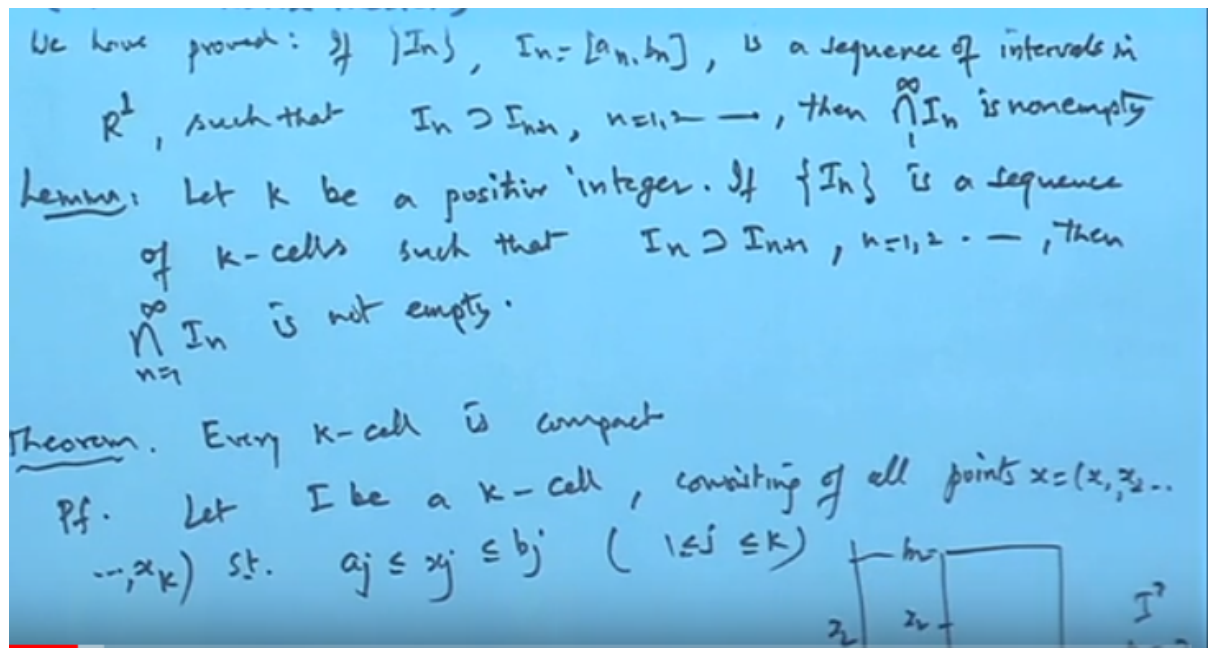 We have proved: If {In}, In = [an, bn], is a sequence of intervals in
R¹, such that In ⊃ In+1, n=1,2 —, then ∞⋂1 In is nonempty
Lemma: Let k be a positive integer. If {In} is a sequence
of k-cells such that In ⊃ In+1, n=1,2 . —, then
∞⋂n=1 In is not empty.
Theorem. Every k-cell is compact
Pf. Let I be a k-cell, consisting of all points x=(x1,x2..
..,xk) s.t. aj ≤ xj ≤ bj ( 1≤j≤k)